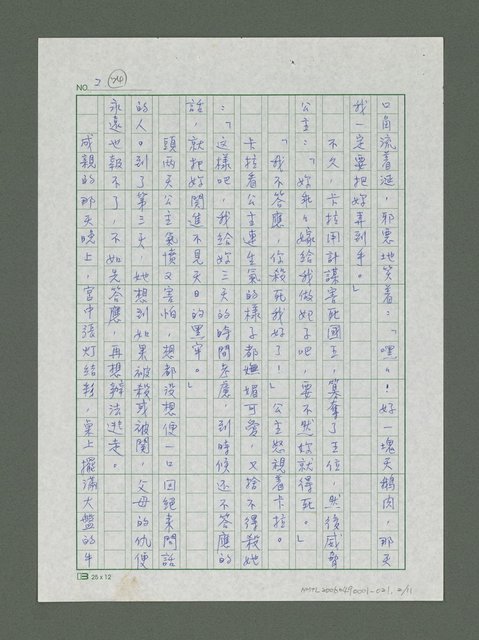 NO. 2 24
口角流着涎，邪恶地笑着：「嘿々！好一塊天鵝肉，那天
我一定要把妳弄到手。」
不久，卡拉用計謀害死國王，篡奪了王位，然後威脅
公主：「妳乖々嫁給我做妃子吧，要不然妳就得死。」
「我不答應，你殺死我好了！」公主怒視着卡拉。
卡拉看公主連生氣的樣子都嫵媚可愛，又捨不得殺她
：「这樣吧，我給妳三天的時間考慮，到時候还不答應的
話，就把妳関進不見天日的黑牢。」
頭两天公主氣憤又害怕，想都没想便一口回絕来問話
的人。到了第三天，她想到如果被殺或被関，父母的仇便
永遠也報不了，不如先答應，再想辦法逃走。
成親的那天晚上，宮中張灯結彩，桌上擺滿大盤的牛
25 x 12
2/11